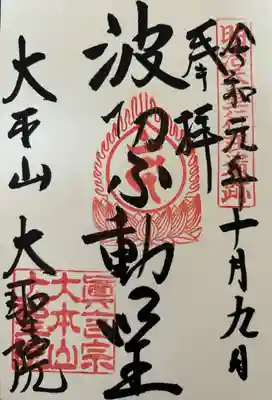 令和元年十月九日
奉拝
波切不動明王
大本山 大聖院
眞言宗
大本山